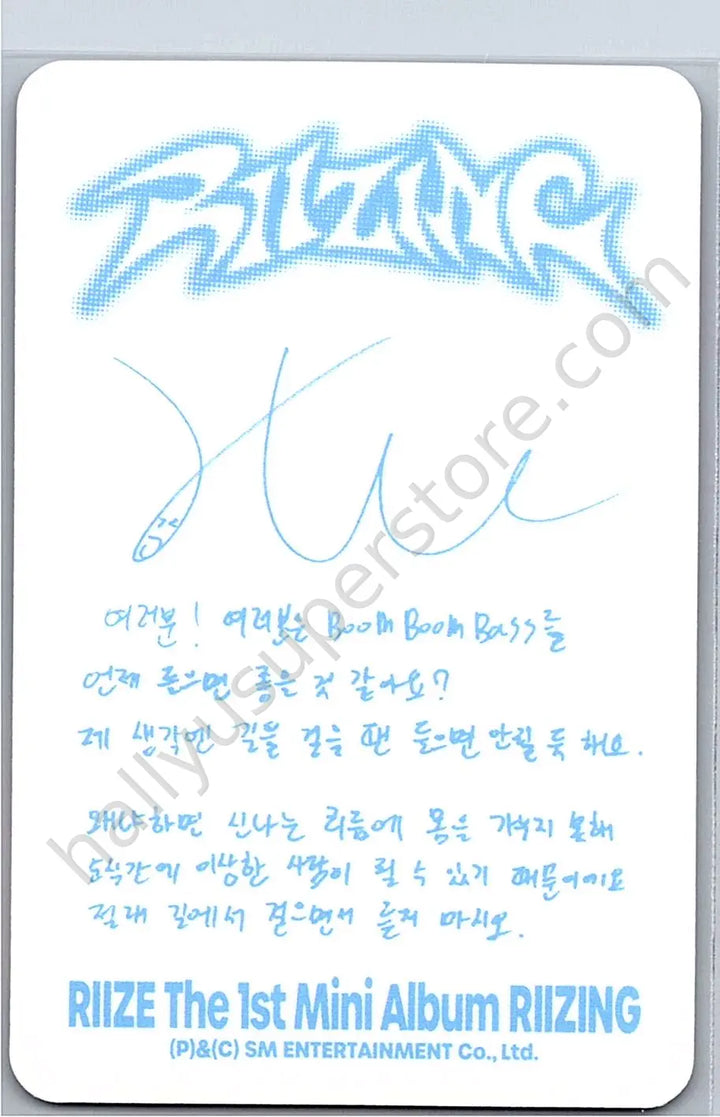 RIIZING
여러분! 여러분은 Boom Boom Bass를
언제 들으면 좋을 것 같아요?
제 생각엔 길을 걸을 땐 들으면 안될 듯 해요.
왜냐하면 신나는 리듬에 몸을 가누지 못해
순식간에 이상한 사람이 될 수 있기 때문이에요
절대 길에서 걸으면서 듣지 마시오.
RIIZE The 1st Mini Album RIIZING
(P)&(C) SM ENTERTAINMENT Co., Ltd.
hallyusuperstore.com